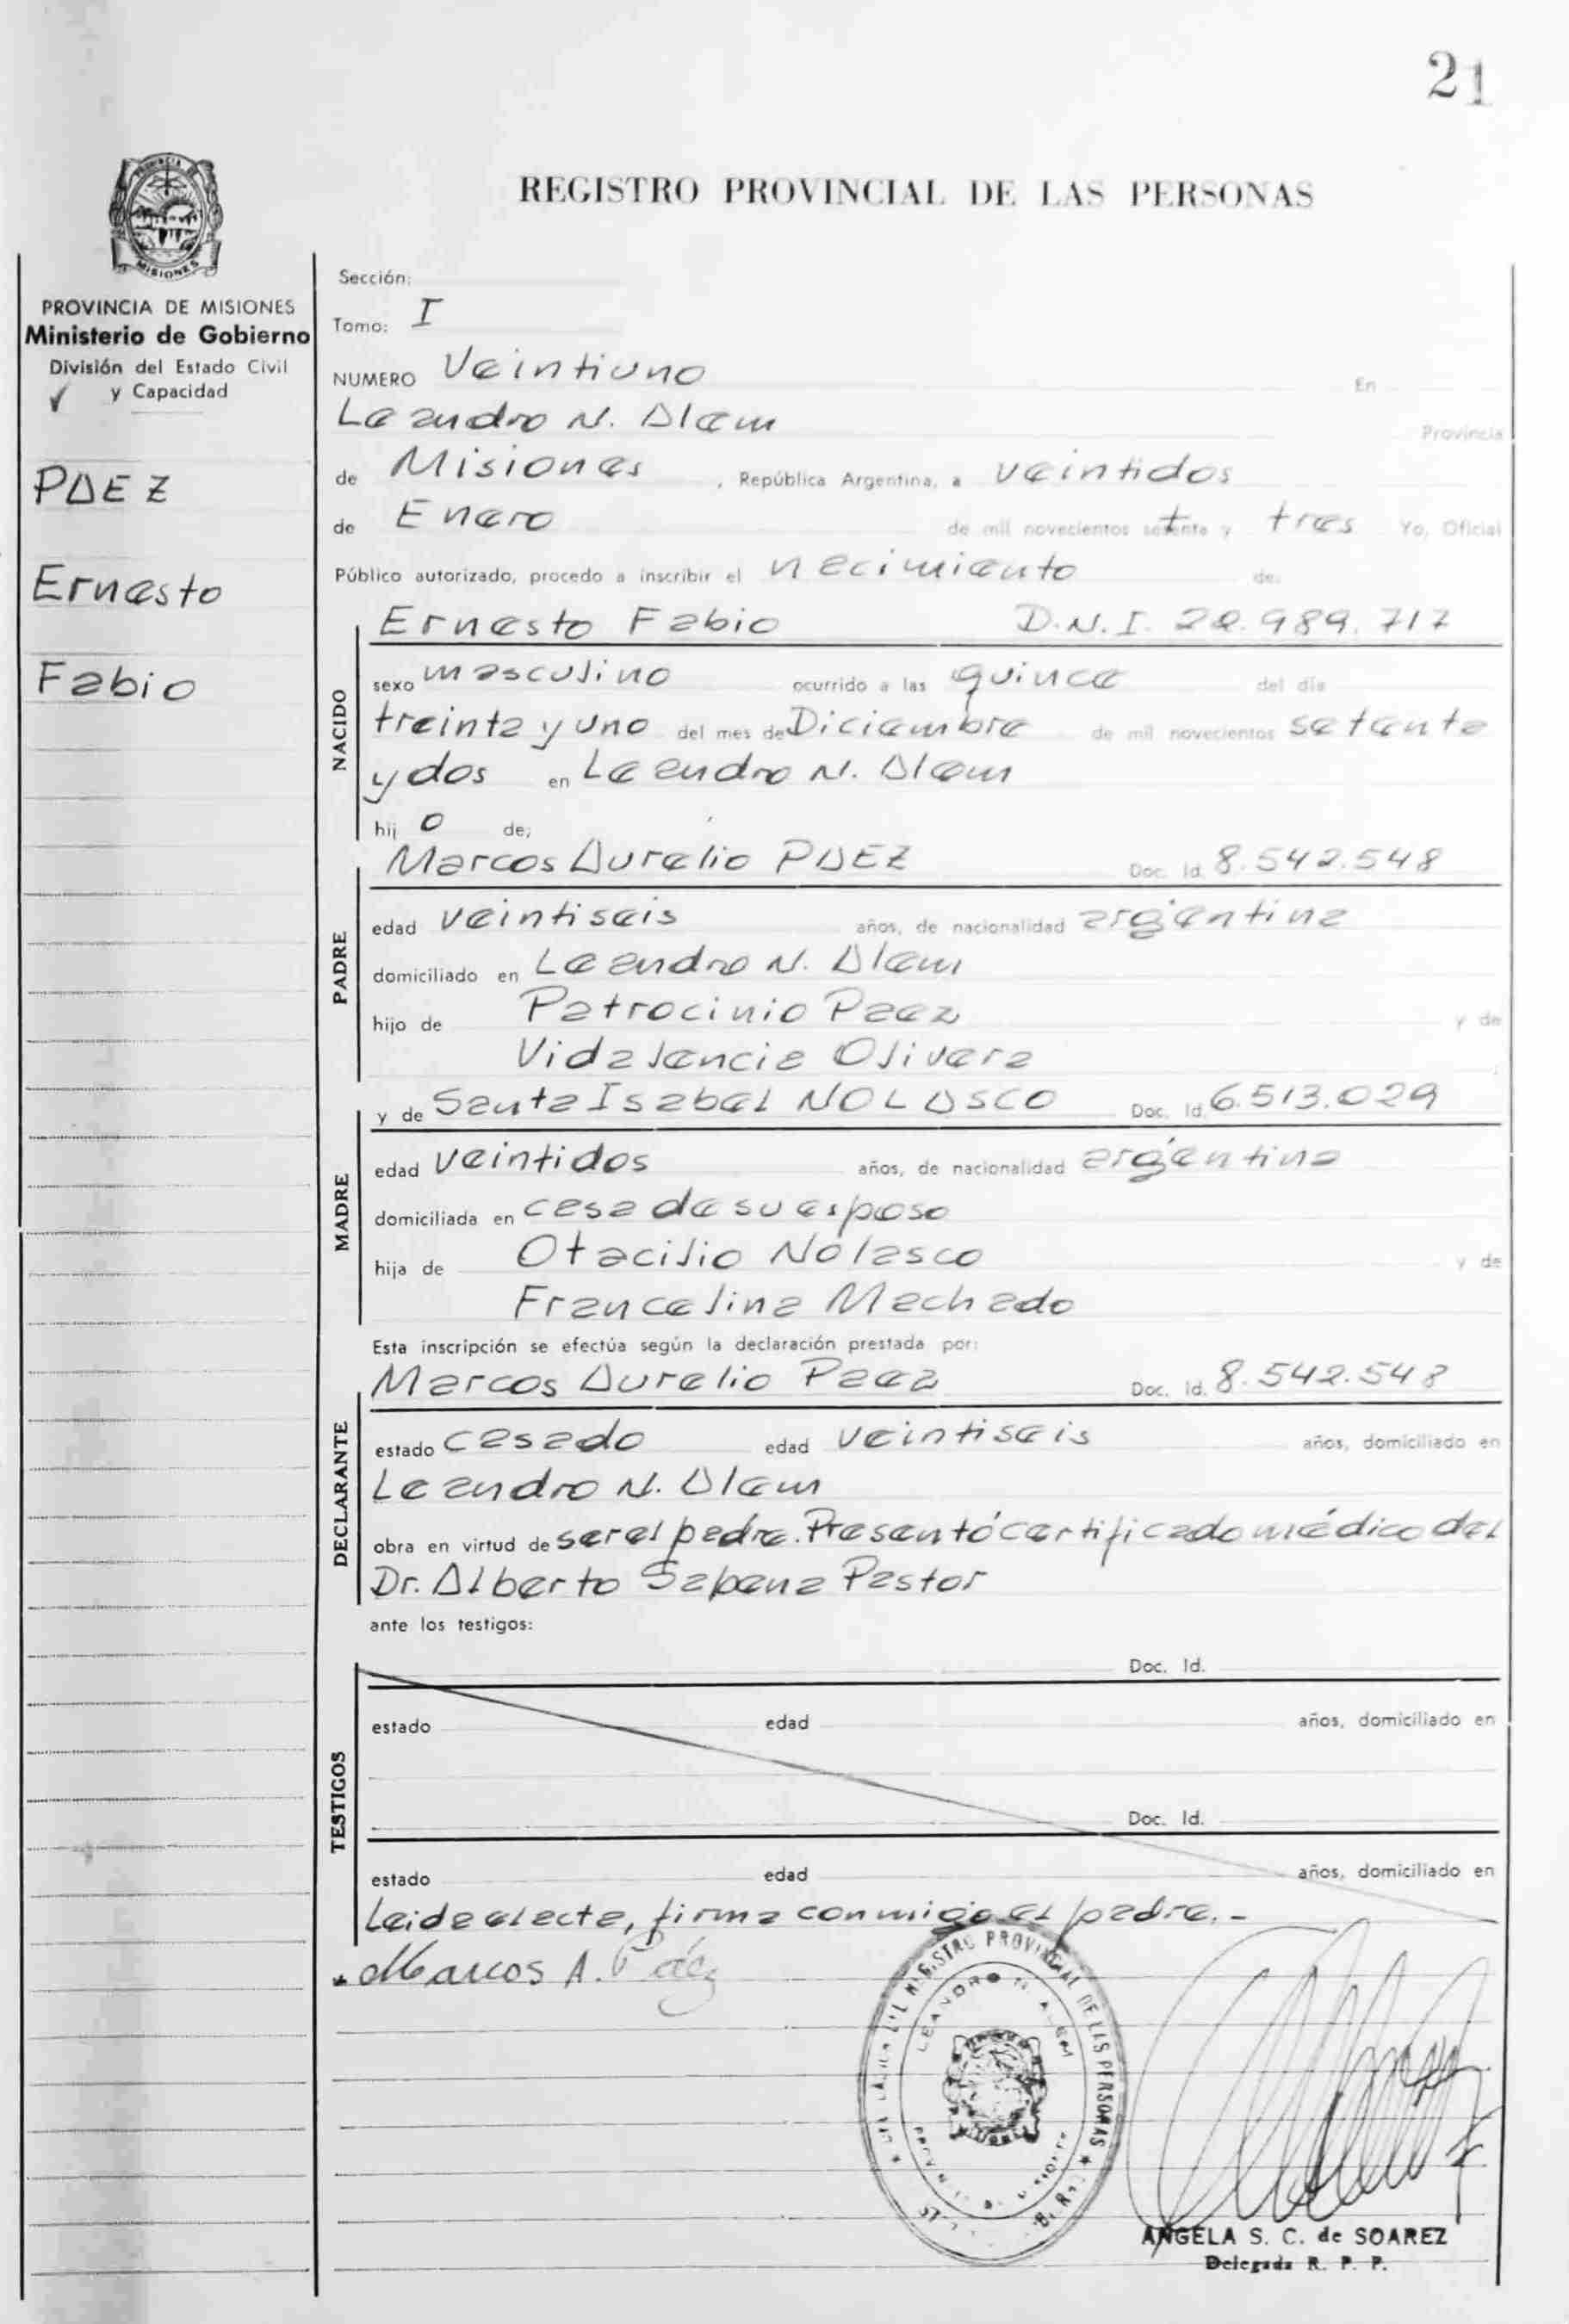 21
REGISTRO PROVINCIAL DE LAS PERSONAS
PROVINCIA DE MISIONES
Ministerio de Gobierno
División del Estado Civil
y Capacidad
PAEZ
Ernesto
Fabio
Sección:
Tomo: I
NUMERO Veintiuno En
Leandro N. Alem Provincia
de Misiones , República Argentina, a veintidos
de Enero de mil novecientos setenta y tres Yo, Oficial
Público autorizado, procedo a inscribir el nacimiento de:
NACIDO
Ernesto Fabio D.N.I. 22.989.717
sexo masculino ocurrido a las quince del día
treinta y uno del mes de Diciembre de mil novecientos setenta
y dos en Leandro N. Alem
hijo de;
PADRE
Marcos Aurelio PAEZ Doc. Id. 8.542.548
edad veintiseis años, de nacionalidad argentina
domiciliado en Leandro N. Alem
hijo de Patrocinio Paez y de
Vidalencia Olivera
MADRE
y de Santa Isabel NOLASCO Doc. Id. 6.513.029
edad veintidos años, de nacionalidad argentina
domiciliada en casa de su esposo
hija de Otacilio Nolasco y de
Francelina Machado
Esta inscripción se efectúa según la declaración prestada por:
DECLARANTE
Marcos Aurelio Paez Doc. Id. 8.542.548
estado casado edad veintiseis años, domiciliado en
Leandro N. Alem
obra en virtud de ser el padre. Presentó certificado médico del
Dr. Alberto Sapena Pastor
ante los testigos:
TESTIGOS
Doc. Id.
estado edad años, domiciliado en
Doc. Id.
estado edad años, domiciliado en
Leida el acta, firma conmigo el padre.-
Marcos A. Páez
REGISTRO PROVINCIAL DE LAS PERSONAS
LEANDRO N. ALEM
ANGELA S. C. de SOAREZ
Delegada R. P. P.